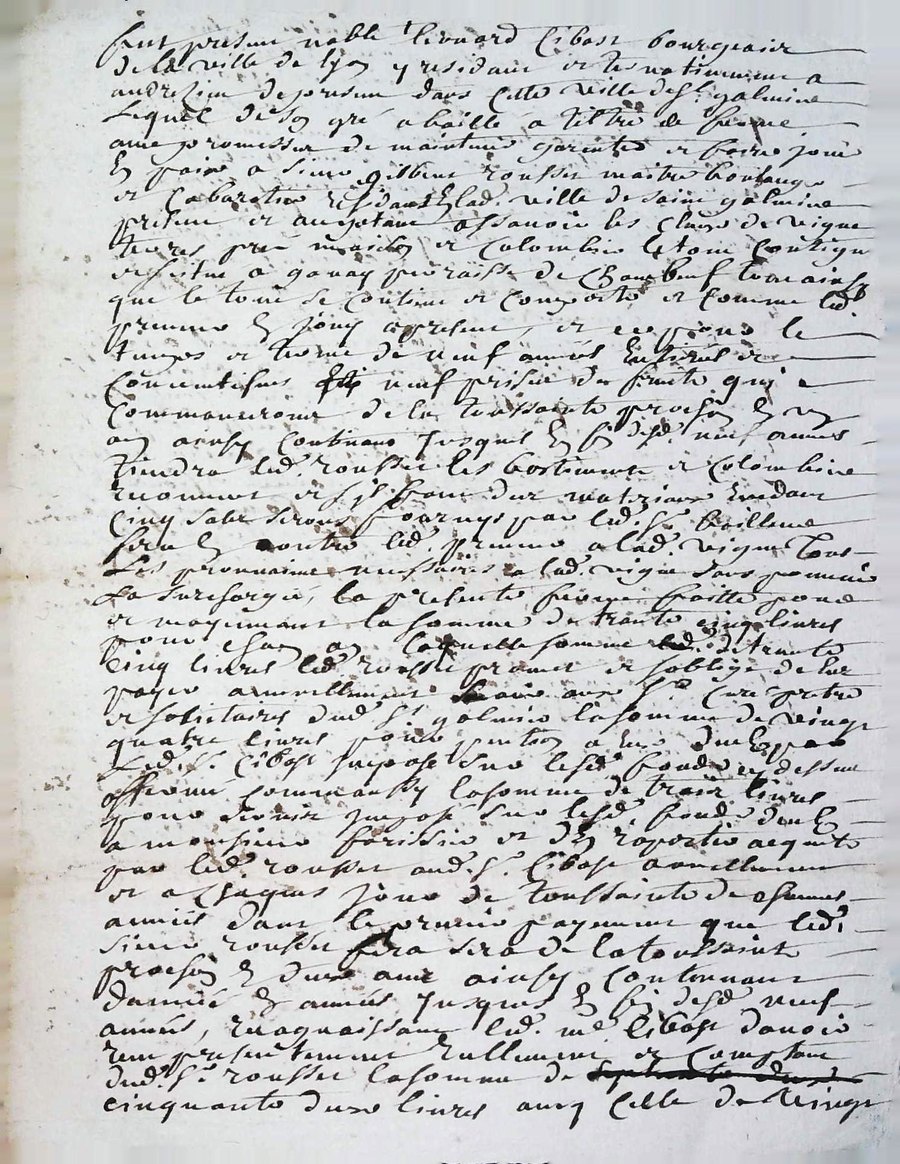 fut presant noble lienard Cibost bourgeoix
de la ville de lyon y residant et
de presant dans cette ville de st galmier
Lequel de son gré a baillé a tiltre de ferme
avec promesse de maintenir garentir et faire jouir
En paix a sieur gilbert rousset maitre boulanger
et Cabaretier residant En lad. ville de saint galmier
presant et acceptant assavoir les Cloze de vigne
terres pré maison et Colombier le tout Contigu
et situé a paroisse de Chambeuf tout ainsy
que le tout se Contient et Comporte et Comme led.
preneur En jouy a present, et ce pour le
temps et terme de neuf années Entieres et
Consecutifves neuf prises de fruits qui
Commanceront de la toussainte prochain En un
an ainsy Continuer jusques En fin desd. neuf années
tiendra led. rousset les bastiments et Colombier
et s'il faut des materiaux
Cinq sabz seront fournys par led. sr bailleur
fera En outre led. preneur a lad. vigne tous
Les prouvaines necessaires a lad. vigne sans pouvoir
La surcharger, la presente ferme faitte pour
et moyennant la somme de trante cinq livres
pour chacun an laquelle somme de trante
Cinq livres led. rousset promet et s'oblige de luy
payer annuellement sr Curé prêtre
et sosietaires dud. st galmier la somme de vingt
quatre livres pour pention a eux due par
Led. sr. Cibost jmposé sur lesd. fonds cy dessus
affermé comm'aussy la somme de trois livres
pour jmposé sur lesd. fonds due
a monsieur forissier et d'En raporter acquits
par led. rousset aud. sr. Cibost annuellement
et a Chaques jour de toussainte de chacunes
années dont le premier payement que led.
sieur rousset fera sera de la toussaint
prochain En deux ans ainsy Continuant
d'année En années jusques En fin desd. neuf
années, recognaissant led. me Cibost d'avoir
reçu presentement reellement et Comptant
dud. sr. rousset la somme de septante deux
cinquante deux livres avec Celle de Vingt